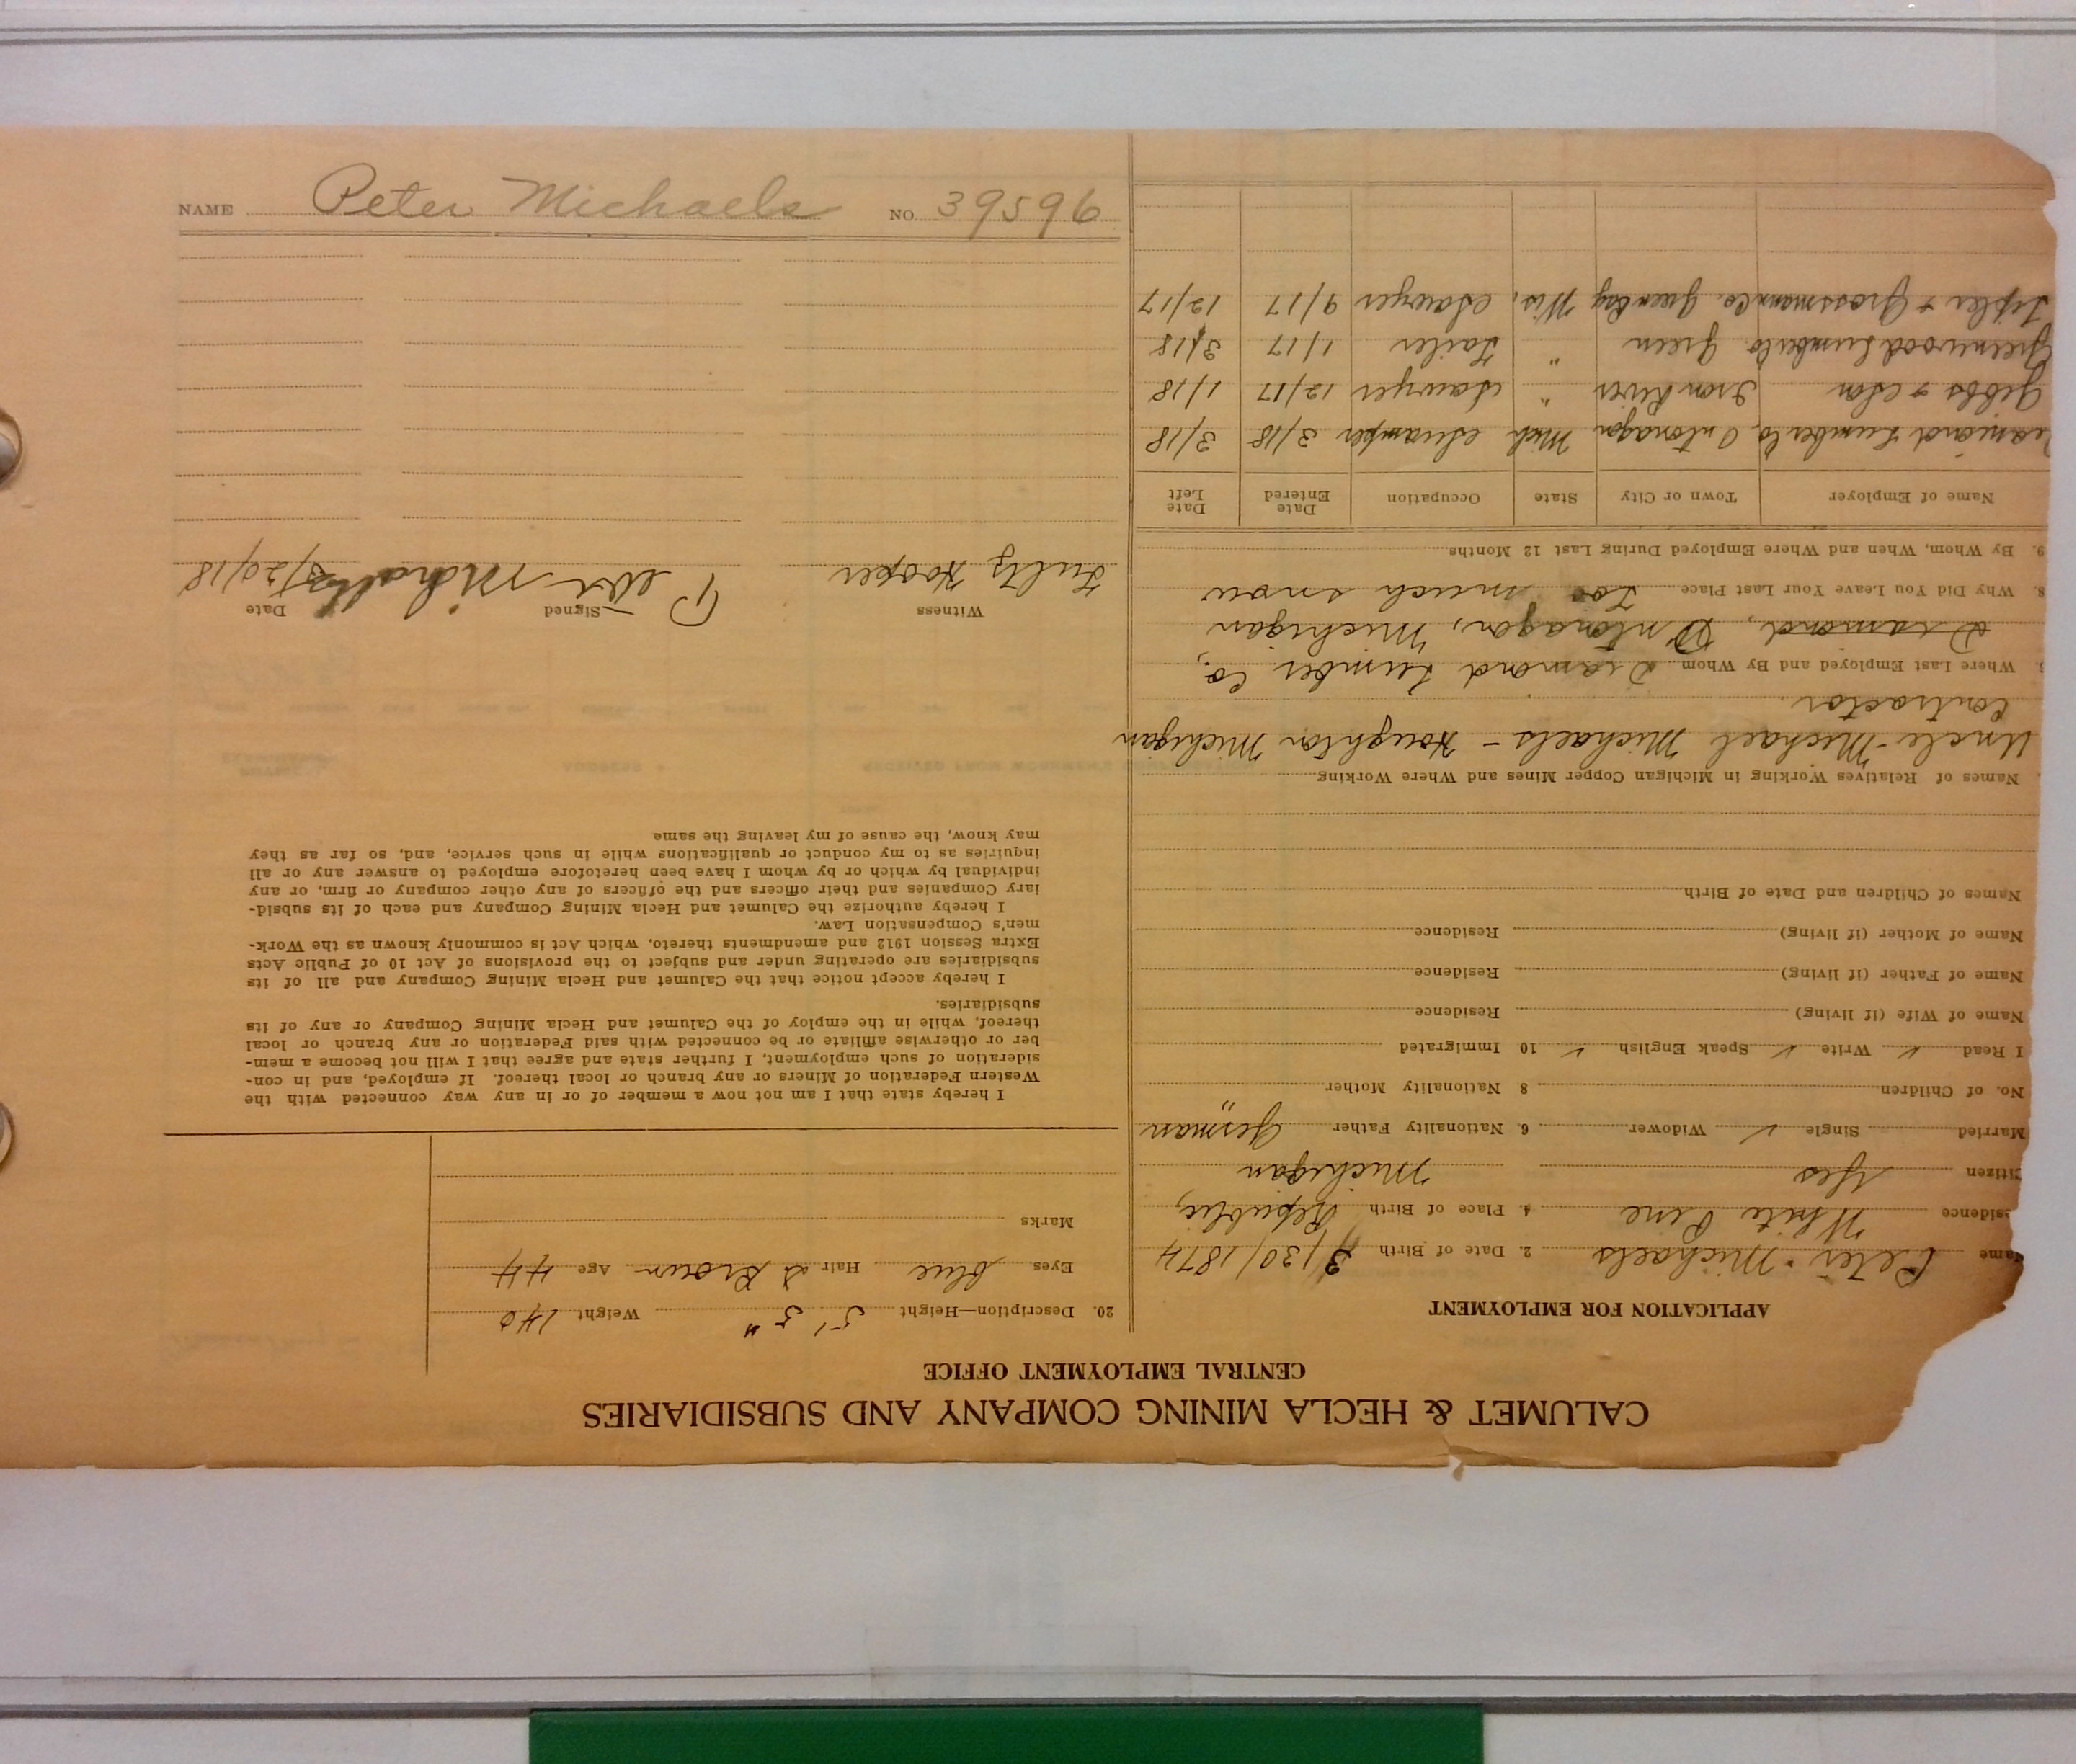 CALUMET & HECLA MINING COMPANY AND SUBSIDIARIES
CENTRAL EMPLOYMENT OFFICE
APPLICATION FOR EMPLOYMENT
Name Peter Michaels 2. Date of Birth 3/30/1874
Residence White Pine 4. Place of Birth Republic,
Citizen Yes Michigan
Married Single ✓ Widower 6. Nationality Father German
No. of Children 8 Nationality Mother "
I Read ✓ Write ✓ Speak English ✓ 10 Immigrated
Name of Wife (if living) Residence
Name of Father (if living) Residence
Name of Mother (if living) Residence
Names of Children and Date of Birth
Names of Relatives Working in Michigan Copper Mines and Where Working
Uncle - Michael Michaels - Houghton Michigan
Contractor
Where Last Employed and By Whom Diamond Lumber Co,
Diamond, Ontonagon, Michigan
8. Why Did You Leave Your Last Place Too much snow
9. By Whom, When and Where Employed During Last 12 Months
Name of Employer Town or City State Occupation Date Entered Date Left
Diamond Lumber Co Ontonagon Mich Swamper 3/18 3/18
Gibbs & Son Iron River " Sawyer 12/17 1/18
Greenwood Lumber Co Green " Failer 1/17 3/18
& Grossmann Co. Green Bay Wis. Sawyer 9/17 12/17
20. Description—Height 5' 5" Weight 140
Eyes Blue Hair D Brown Age 44
Marks
I hereby state that I am not now a member of or in any way connected with the
Western Federation of Miners or any branch or local thereof. If employed, and in con-
sideration of such employment, I further state and agree that I will not become a mem-
ber or otherwise affiliate or be connected with said Federation or any branch or local
thereof, while in the employ of the Calumet and Hecla Mining Company or any of its
subsidiaries.
I hereby accept notice that the Calumet and Hecla Mining Company and all of its
subsidiaries are operating under and subject to the provisions of Act 10 of Public Acts
Extra Session 1912 and amendments thereto, which Act is commonly known as the Work-
men's Compensation Law.
I hereby authorize the Calumet and Hecla Mining Company and each of its subsid-
iary Companies and their officers and the officers of any other company or firm, or any
individual by which or by whom I have been heretofore employed to answer any or all
inquiries as to my conduct or qualifications while in such service, and, so far as they
may know, the cause of my leaving the same
Witness Signed Date
Hooper Peter Michaels 3/20/18
NAME Peter Michaels NO. 39596